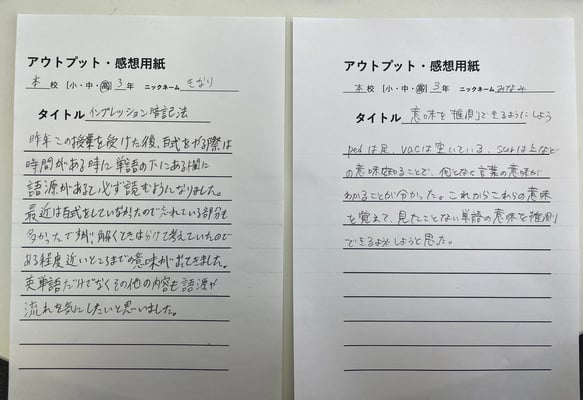 アウトプット・感想用紙
本 校 [小・中・高] 3 年 ニックネーム きなり
タイトル インプレッション暗記法
昨年この授業を受けた後、百式をやる際は
時間がある時に単語の下にある欄に
語源があると必ず読むようになりました。
最近は百式をしていなかったので忘れている部分も
多かったですが、解くときは分けて考えていたので
ある程度近いところまでの意味が出てきました。
英単語だけでなくその他の内容も語源や
流れを気にしたいと思いました。
アウトプット・感想用紙
本 校 [小・中・高] 3 年 ニックネーム みなみ
タイトル 意味を「推測」できるようにしよう
pedは足、vacは空いている、surは上など
の意味を知ることで、何となく言葉の意味が
わかることが分かった。これからこれらの意味
を覚えて、見たことない単語の意味を推測
できるようにしようと思った。